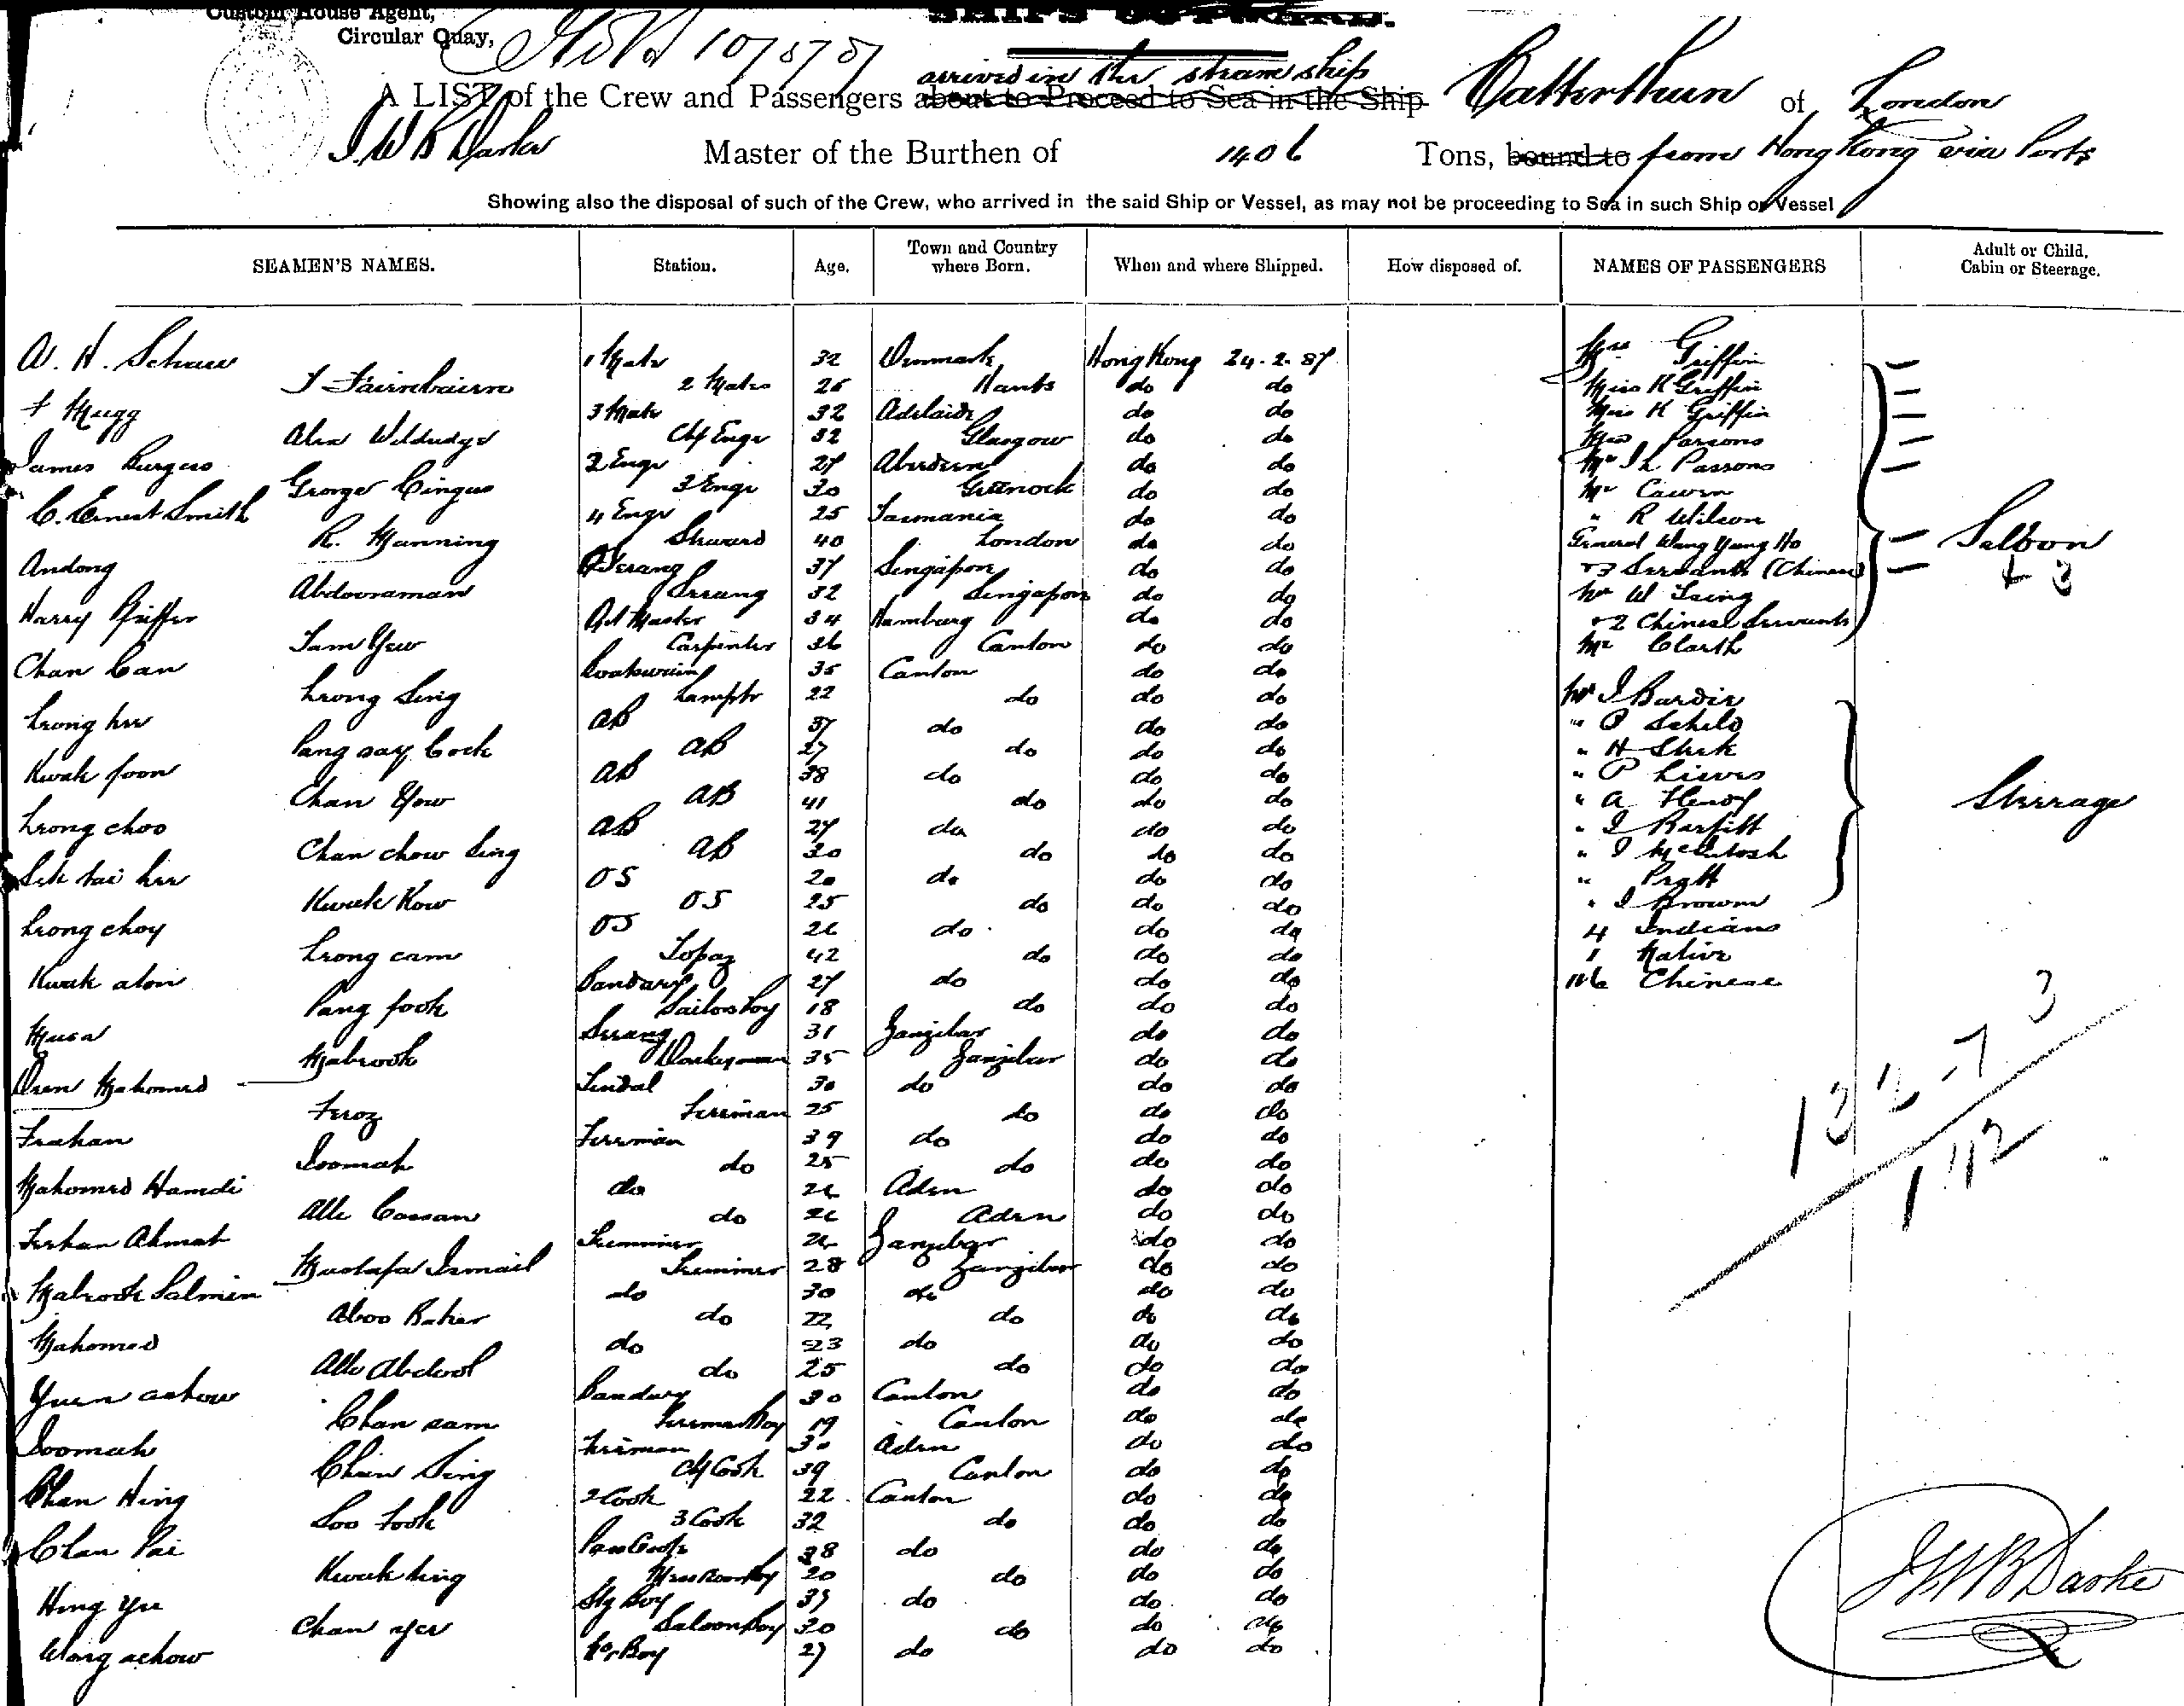 Custom House Agent,
Circular Quay,
SHIP'S
arrived in the steam ship
A LIST of the Crew and Passengers about to Proceed to Sea in the Ship Catterthun of London
J W B Darke Master of the Burthen of 1406 Tons, bound to from Hong Kong via Ports
Showing also the disposal of such of the Crew, who arrived in the said Ship or Vessel, as may not be proceeding to Sea in such Ship or Vessel
SEAMEN'S NAMES. Station. Age. Town and Country where Born. When and where Shipped. How disposed of. NAMES OF PASSENGERS Adult or Child, Cabin or Steerage.
A. H. Schaw 1 Mate 32 Denmark Hong Kong 24.2.87 Griffin
J Fairnbairn 2 Mate 26 Hants do do Miss K Griffin
Mugg 3 Mate 32 Adelaide do do Miss K Griffin
Alex Chf Engr 32 Glasgow do do Parsons
James Burgess 2 Engr 27 Aberdeen do do Parsons
George 3 Engr 30 Greenock do do Mr Cawen
C. Ernest Smith 4 Engr 25 Tasmania do do " R Wilson
R. Manning Steward 40 London do do General Wang Yung Ho
Andong Serang 37 Singapore do do 3 Servants (Chinese)
Abdooraman Serang 32 Singapore do do Mr W Tseing
Harry Pfeiffer Qd Master 34 Hamburg do do 2 Chinese Servants
Saloon
+ 3
Tam Yew Carpenter 36 Canton do do Mr Clarth
Chan Can Boatswain 35 Canton do do
Leong Sing Lamptr 22 do do do Mr J Bardie
Leong hee AB 37 do do do " P Schelo
Pang say Cock AB 27 do do do " H
Kwak foon AB 38 do do do " P Lieves
Chan Yow AB 41 do do do " A Hendy
Steerage
Leong choo AB 27 do do do " J Barfitt
Chan chow Sing AB 30 do do do " J McIntosh
Sek tai hee OS 20 do do do " Pratt
Kwak Kow OS 25 do do do " J Brown
Leong choy OS 26 do do do 4 Indians
Leong cam Topaz 42 do do do 1 Native
Kwak alon Bandary 27 do do do 116 Chinese
Pang fook Sailors boy 18 do do do
Musa Serang 31 Zanzibar do do
Mabrook Donkeyman 35 Zanzibar do do
Mahomed Tindal 30 do do do
Feroz Fireman 25 do do do
Frahan Fireman 39 do do do
Joomah do 25 do do do
Mahomed Hamdi do 26 Aden do do
Alle Cassan do 26 Aden do do
Ferhan Ahmat Trimmer 26 Zanzibar do do
Mustafa Ismail Trimmer 28 Zanzibar do do
Mabrook Salmin do 30 do do do
Aboo Baker do 22 do do do
Mahomed do 23 do do do
Alle Abdool do 25 do do do
Yuen achow Bandary 30 Canton do do
Chan sam Firemans Boy 19 Canton do do
Joomah Fireman 30 Aden do do
Chan Sing Chf Cook 39 Canton do do
Chan Hing 2 Cook 22 Canton do do
Loo Fook 3 Cook 32 do do do
Chan Pai Pass Cook 38 do do do
Kwak hing Messroom boy 20 do do do
Hing Yee Stg Boy 39 do do do
Chan yee Saloon boy 30 do do do
Wong achow Boy 27 do do do
J W B Darke